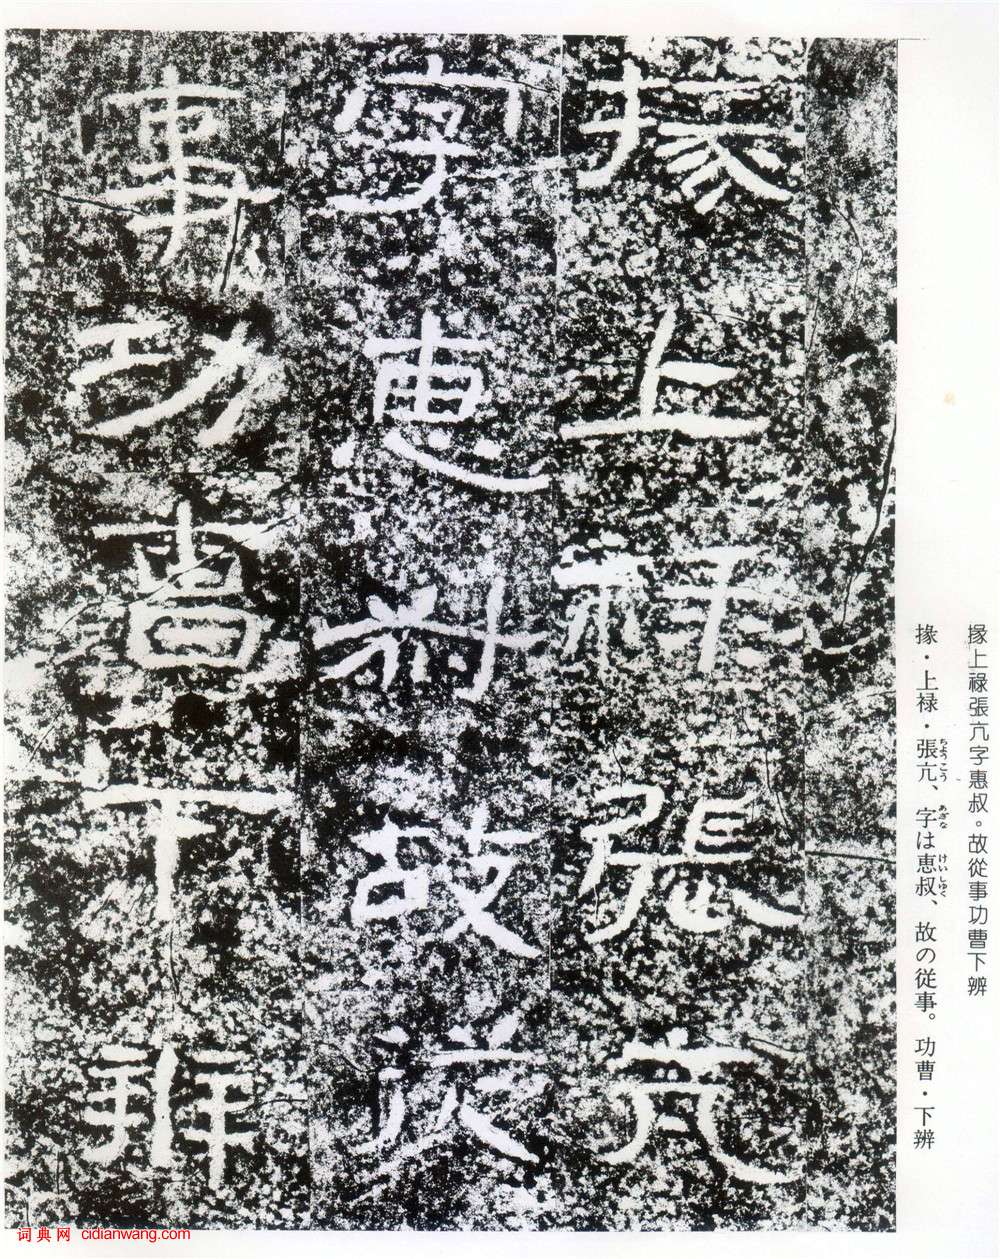 掾上祿張亢
字惠叔故從
事功曹下辨
掾上祿張亢字惠叔。故從事功曹下辨
掾・上禄・張亢、字は恵叔、故の従事。功曹・下辨
ちようこう
あざな
けいしゆく
词典网 cidianwang.com